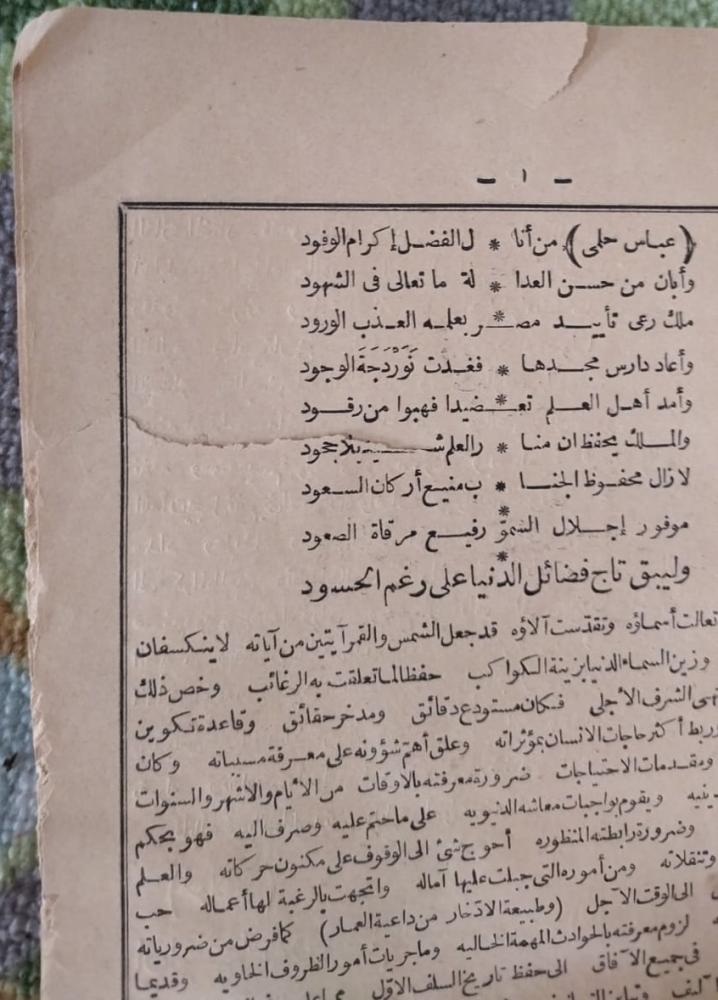 - ١ -
(عباس حلمى) من أنا * ل الفضل إكرام الوفود
وأبان من حسن العدا * لة ما تعالى فى الشهود
ملك رعى تأييد مصـ * ـر بعلمه العذب الورود
وأعاد دارس مجدها * فغدت نور دجة الوجود
وأمد أهل العلم تعـ * ـضيدا فهبوا من رقود
والملك يحفظ ان منا * ر العلم شـ بلا جحود
لازال محفوظ الجنا * ب منيع أركان السعود
موفور إجلال السمو * رفيع مرقاة الصعود
وليبق تاج فضائل الدنيا * على رغم الحسود
تعالت أسماؤه وتقدست آلاؤه قد جعل الشمس والقمر آيتين من آياته لا ينكسفان
وزين السماء الدنيا بزينة الكواكب حفظا لما تعلقت به الرغائب وخص ذلك
الشرف الأجلى فكان مستودع دقائق ومدخر حقائق وقاعدة تكوين
ربط أكثر حاجات الانسان بمؤثراته وعلق أهم شؤونه على معرفة مسبباته وكان
ومقدمات الاحتياجات ضرورة معرفته بالاوقات من الأيام والاشهر والسنوات
ويقوم بواجبات معاشه الدنيويه على ما حتم عليه وصرف اليه فهو بحكم
وضرورة رابطته المنظوره أحوج شئ الى الوقوف على مكنون حركاته والعلم
وتنقلاته ومن أموره التى جبلت عليها آماله واتجهت بالرغبة لها أعماله حب
الى الوقت الآجل (وطبيعة الادخار من داعية العمار) كما فرض من ضرورياته
لزوم معرفته بالحوادث المهمة الخاليه وماجريات أمور الظروف الخاويه وقديما
فى جميع الآفاق الى حفظ تاريخ السلف الاول